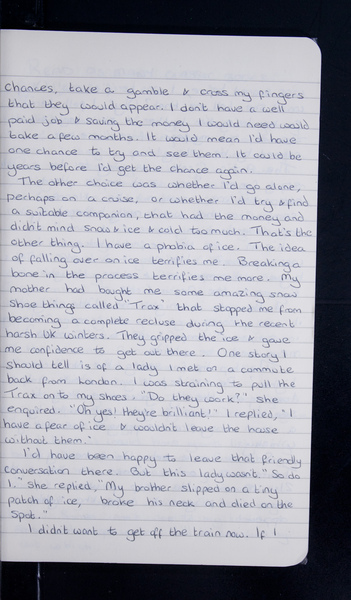 chances, take a gamble & cross my fingers
that they would appear. I don't have a well
paid job & saving the money I would need would
take a few months. It would mean I'd have
one chance to try and see them. It could be
years before I'd get the chance again.
The other choice was whether I'd go alone,
perhaps on a cruise, or whether I'd try & find
a suitable companion, that had the money and
didn't mind snow & ice & cold too much. That's the
other thing. I have a phobia of ice. The idea
of falling over on ice terrifies me. Breaking a
bone in the process terrifies me more. My
mother had bought me some amazing snow
shoe things called "Trax" that stopped me from
becoming a complete recluse during the recent
harsh UK winters. They gripped the ice & gave
me confidence to get out there. One story I
should tell is of a lady I met on a commute
back from London. I was straining to pull the
Trax on to my shoes. "Do they work?" she
enquired. "Oh yes! they're brilliant!" I replied, "I
have a fear of ice & wouldn't leave the house
without them."
I'd have been happy to leave that friendly
conversation there. But this lady wasn't. "So do
I," she replied, "My brother slipped on a tiny
patch of ice, broke his neck and died on the
spot."
I didn't want to get off the train now. If I